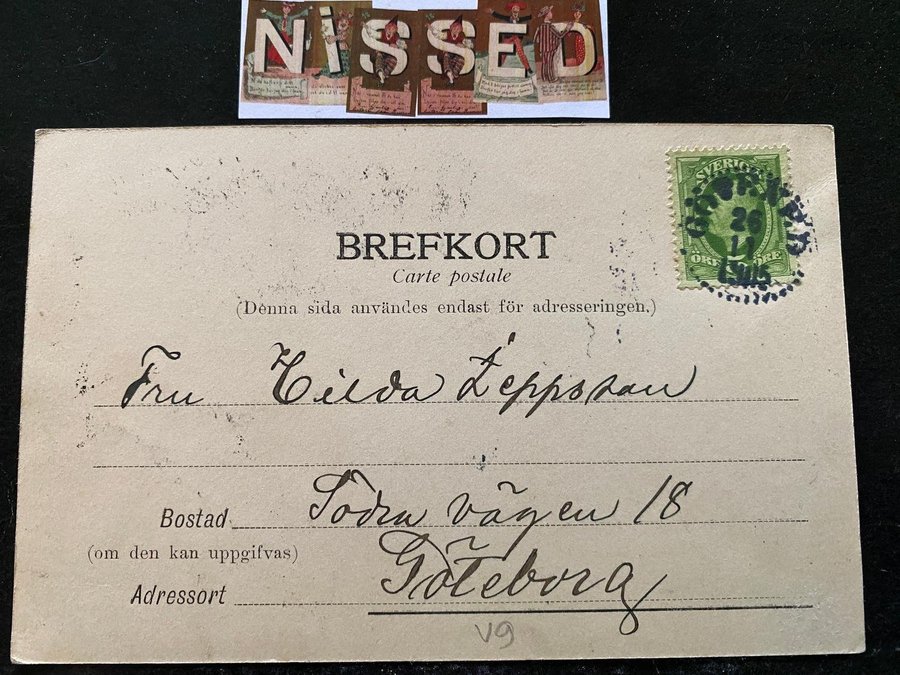 NISSED
SVERIGE
26
11
1905
ÖRE ÖRE
BREFKORT
Carte postale
(Denna sida användes endast för adresseringen.)
Fru Hilda Zeppstau
Bostad Södra vägen 18
(om den kan uppgifvas)
Adressort Göteborg
V9